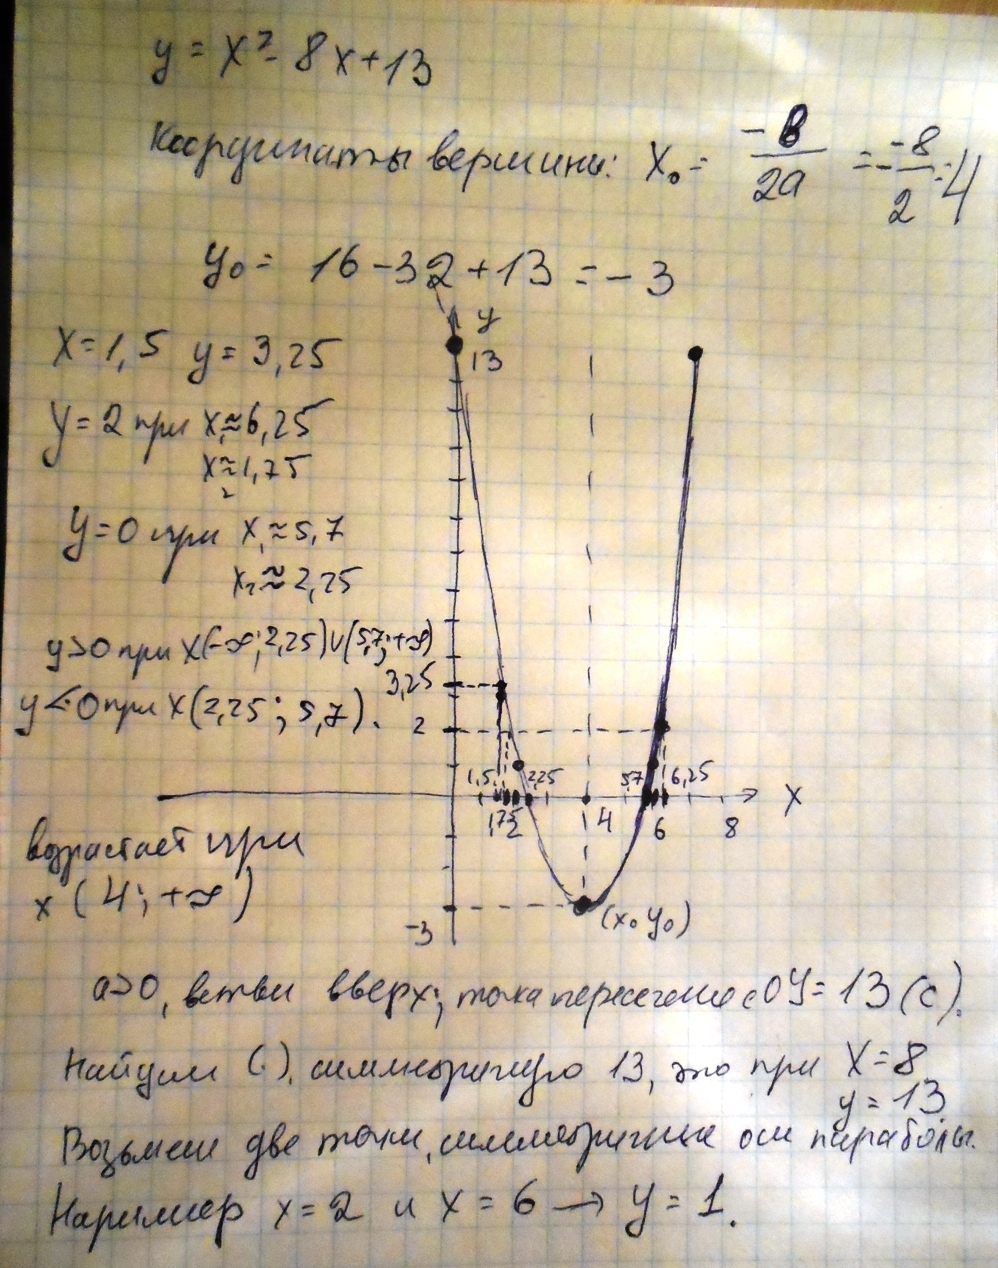 y = x² - 8x + 13
Координаты вершины: x₀ = -в/2a = - -8/2 = 4
y₀ = 16 - 32 + 13 = - 3
x = 1,5 y = 3,25
y = 2 при x₁ ≈ 6,25
x₂ ≈ 1,75
y = 0 при x₁ ≈ 5,7
x₂ ≈ 2,25
y > 0 при x (-∞; 2,25) ∪ (5,7; +∞)
y < 0 при x (2,25; 5,7).
возрастает при
x (4; +∞)
y
13
3,25
2
1,5
2,25
5,7
6,25
x
1,75
2
4
6
8
-3
(x₀ y₀)
a>0, ветви вверх; точка пересечение с OY = 13 (c).
Найдем (·), симметричную 13, это при x = 8
y = 13
Возьмем две точки, симметричные оси параболы.
Например x = 2 и x = 6 → y = 1.